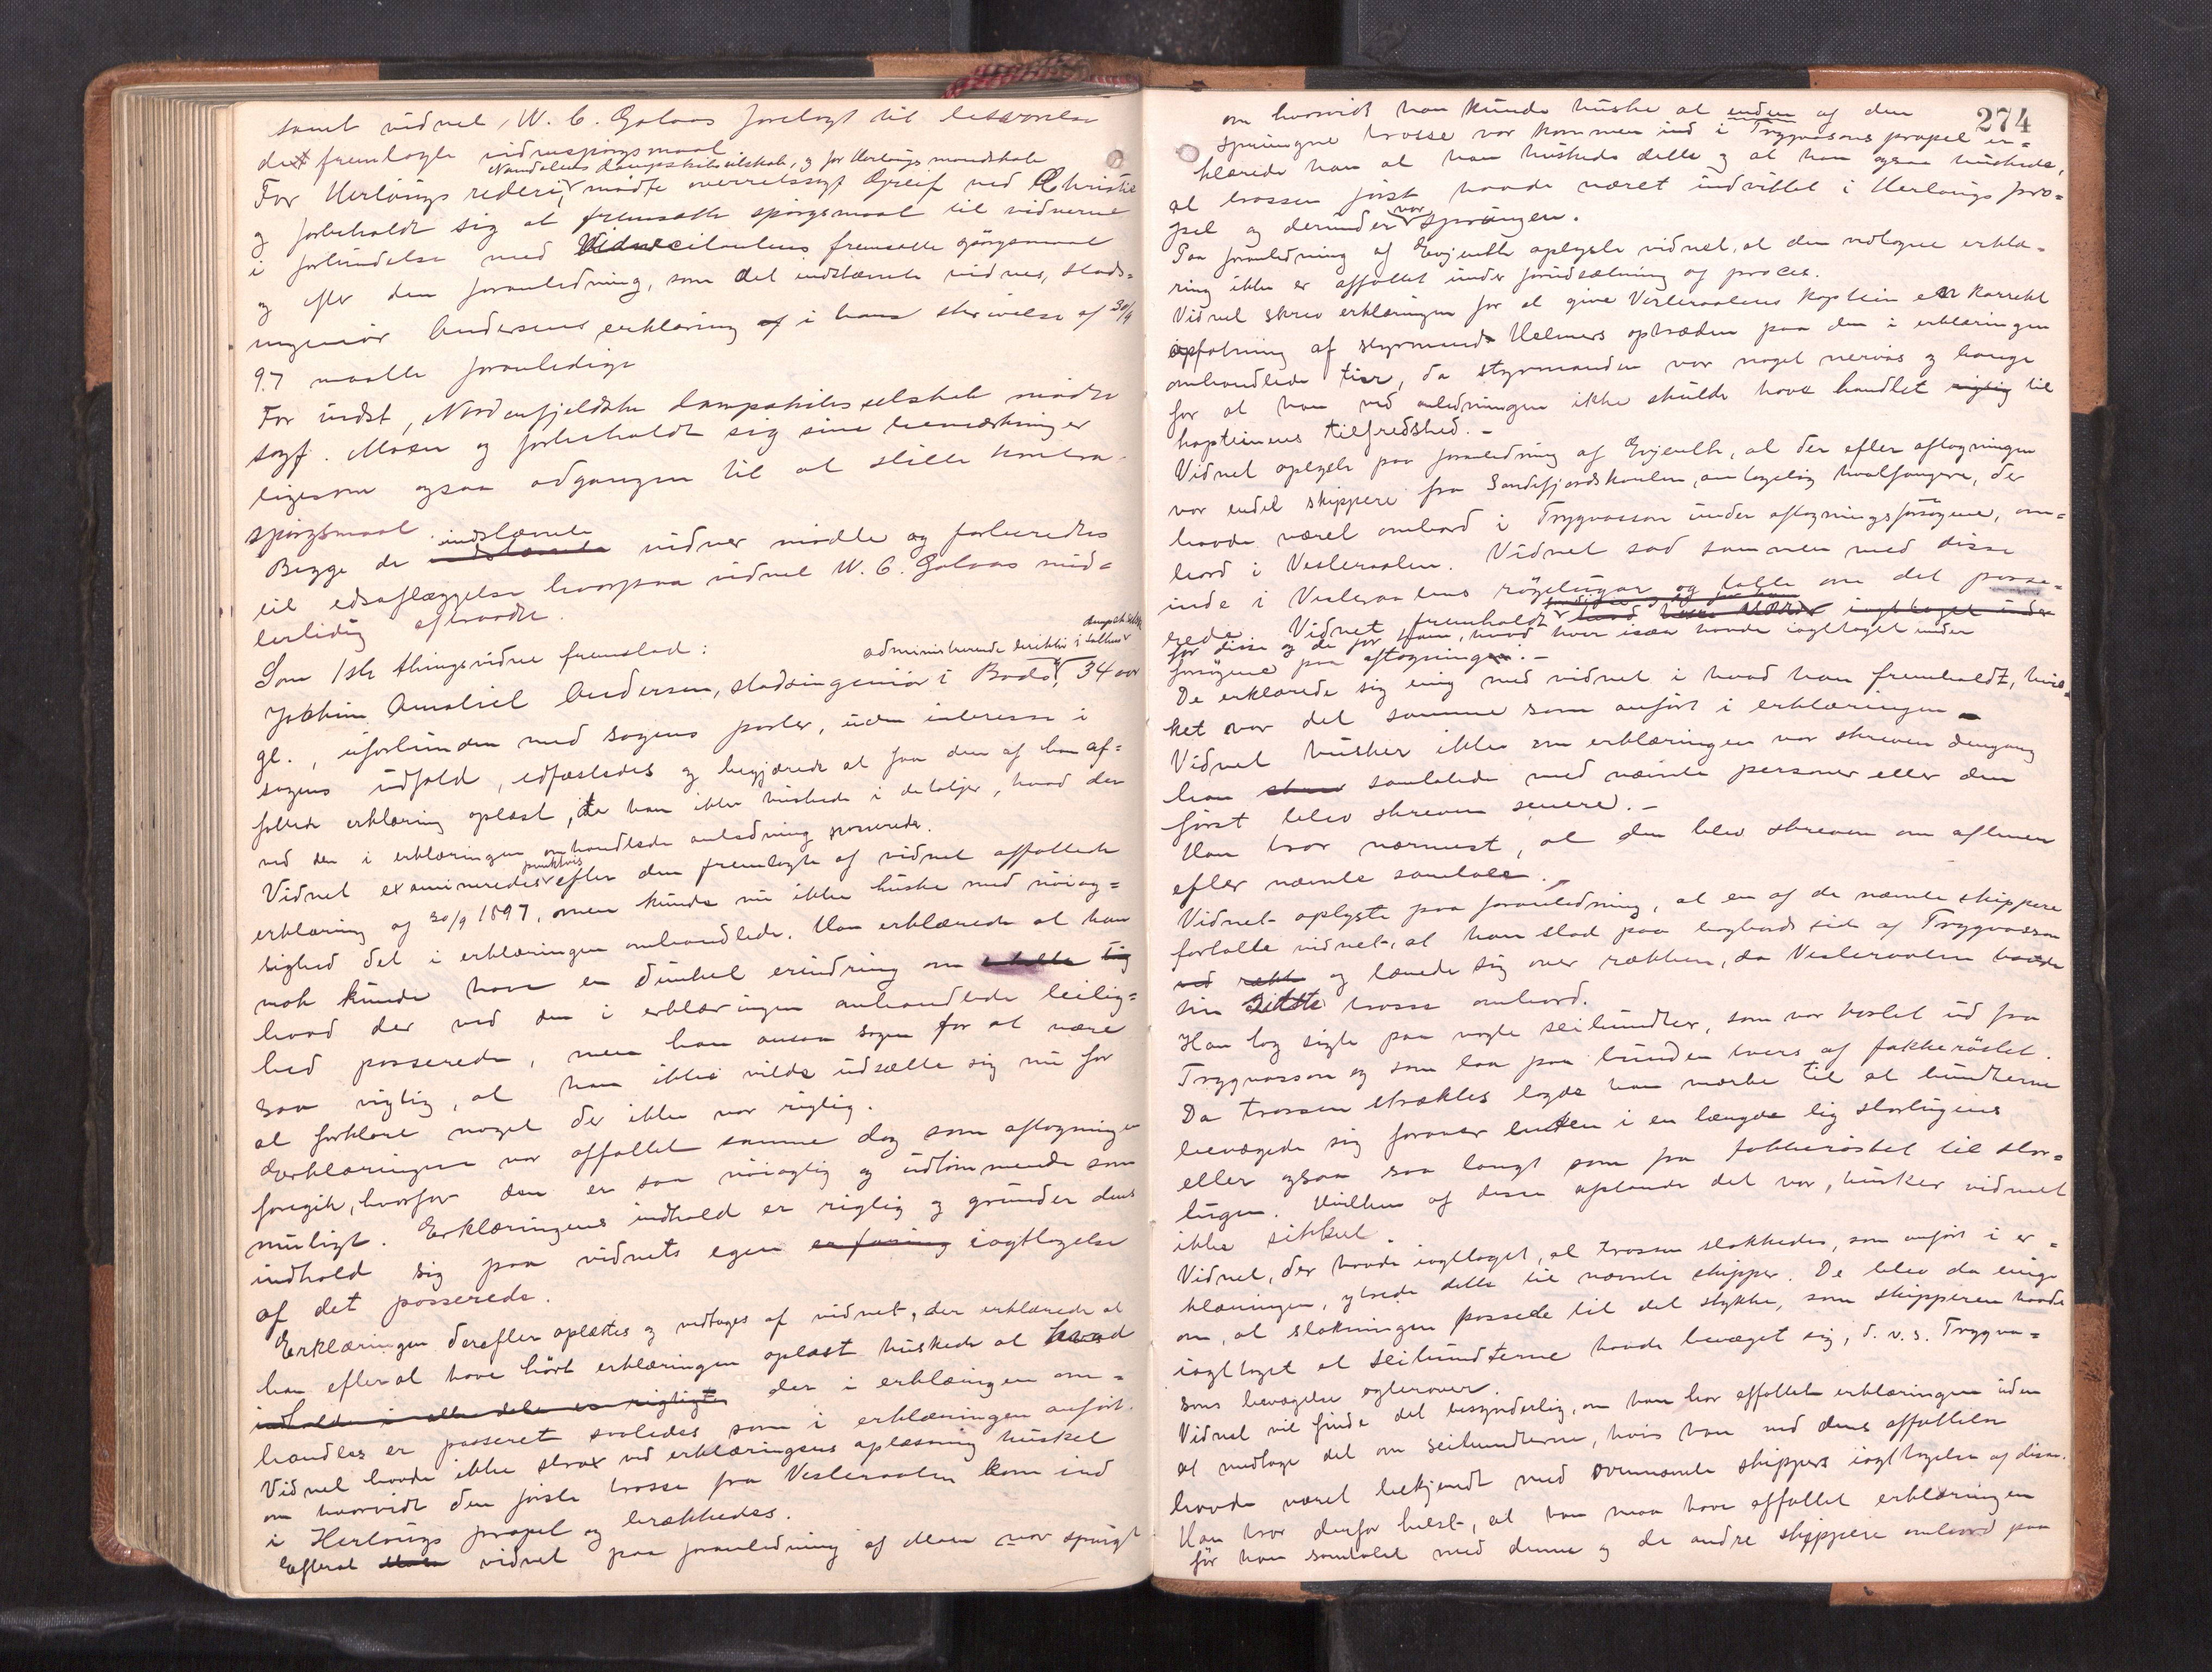 samt vidnet, W. C. Galaas forelagt til besvarelse
det fremlagte vidnespørgsmaal
For Herlaugs rederi, Namdalens dampskibsselskab, og for Herlaugs mandskab mødte overretssagf. Greif ved Christie
og forbeholdt sig at fremsætte spørgsmaal til vidnerne
i forbindelse med Vidnecitantens fremsatte spørgsmaal
og efter den foranledning, som det indstævnte vidnes, stads-
ingeniør Andersens erklæring i hans skrivelse af 30/9
97 maatte foranledige
For indst, Nordenfjeldske dampskibsselskab mødte
sagf. Moen og forbeholdt sig sine bemærkninger
ligesom ogsaa adgangen til at stille kontra-
spørgsmaal.
Begge de indstævnte vidner mødte og forberedtes
til edsaflæggelse hvorpaa vidnet W. C. Galaas mid-
lertidig aftraadte.
Som 1ste thingsvidne fremstod:
Jokhim Amaliel Andersen, stadsingeniør i Bodø, administrerende direktør i Saltens dampsk.selsk. 34 aar
gl., uforbunden med sagens parter, uden interesse i
sagens udfald, edfæstedes og begjærede at faa den af ham af-
fattede erklæring oplæst, da han ikke huskede i detaljer, hvad der
ved den i erklæringen omhandlede anledning passerede.
Vidnet examineredes punktvis efter den fremlagte af vidnet affattede
erklæring af 30/9 1897, men kunde nu ikke huske med nøiag-
tighed det i erklæringen omhandlede. Han erklærede at han
nok kunde have en dunkel erindring om
hvad der ved den i erklæringen omhandlede leilig-
hed passerede, men han ansaa sagen for at være
saa vigtig, at han ikke vilde udsætte sig nu for
at forklare noget der ikke var rigtig.
Erklæringen var affattet samme dag som aftagningen
foregik, hvorfor den er saa nøiagtig og udtømmende som
muligt. Erklæringens indhold er rigtig og grunder dens
indhold sig paa vidnets egen erfaring iagttagelse
af det passerede.
Erklæringen derefter oplæstes og vedtages af vidnet, der erklærede at
han efter at have hørt erklæringen oplæst huskede at hvad
indholdet i alle dele er rigtigt der i erklæringen om-
handles er passeret saaledes som i erklæringen anført.
Vidnet havde ikke strax ved erklæringens oplæsning husket
om hvorvidt den første trosse fra Vesteraalen kom ind
i Herlaugs propel og brækkedes.
Efterat vidnet paa foranledning af Moen var spurgt
274
om hvorvidt han kunde huske at enden af den
sprungne trosse var kommen ind i Trygvasons propel er-
klærede han at han huskede dette og at han ogsaa huskede,
at trossen først havde været indviklet i Herlaugs pro-
pel og derunder var sprungen.
Paa foranledning af Evjenth oplyste vidnet, at den vedtagne erklæ-
ring ikke er affattet under forudsætning af proces.
Vidnet skrev erklæringen for at give Vesteraalens kaptein en korrekt
opfatning af styrmand Helmers optræden paa den i erklæringen
omhandlede tur, da styrmanden var noget nervøs og bange
for at han ved anledningen ikke skulde have handlet rigtig til
kapteinens tilfredshed. -
Vidnet oplyste paa foranledning af Evjenth, at der efter aftagningen
var endel skippere fra Sandefjordskanten, antagelig hvalfangere, der
havde været ombord i Trygvasson under aftagningsforsøgene, om-
bord i Vesteraalen. Vidnet sad sammen med disse
inde i Vesteraalens røgelugar og talte om det passe-
rede. Vidnet fremholdt
for disse og de for ham, hvad hver især havde iagttaget under
forsøgene paa aftagningen. -
De erklærede sig enig med vidnet i hvad han fremholdt, hvil-
ket var det samme som anført i erklæringen
Vidnet husker ikke om erklæringen var skreven dengang
han skrev samtalede med nævnte personer eller den
først blev skreven senere. -
Han tror nærmest, at den blev skreven om aftenen
efter nævnte samtale. -
Vidnet oplyste paa foranledning, at en af de nævnte skippere
fortalte vidnet, at han stod paa bagbords side af Trygvasson
ved rækk og lænede sig over rækken, da Vesteraalen havde
sin sidste trosse ombord.
Han tog sigte paa nogle seilbundter, som var kastet ud fra
Trygvasson og som laa paa bunden tvers af fokkerøstet.
Da trossen strækktes lagde han mærke til at bundterne
bevægede sig forover enten i en længde lig storlugens
eller ogsaa saa langt som fra fokkerøstet til stor-
lugen. Hvilken af disse afstande det var, husker vidnet
ikke sikkert.
Vidnet, der havde iagttaget, at trossen slakkedes, som anført i er-
klæringen, ytrede dette til nævnte skipper. De blev da enige
om, at slakningen passede til det stykke, som skipperen havde
iagttaget at seilbundterne havde bevæget sig, d. v. s. Trygva-
sons bevægelse agterover.
Vidnet vil finde det besynderlig, om han har affattet erklæringen uden
at medtage det om seilbundterne, hvis han ved dens affattelse
havde været bekjendt med ovennævnte skippers iagttagelse af disse.
Han tror derfor helst, at han maa have affattet erklæringen
før han samtalet med denne og de andre skippere ombord paa